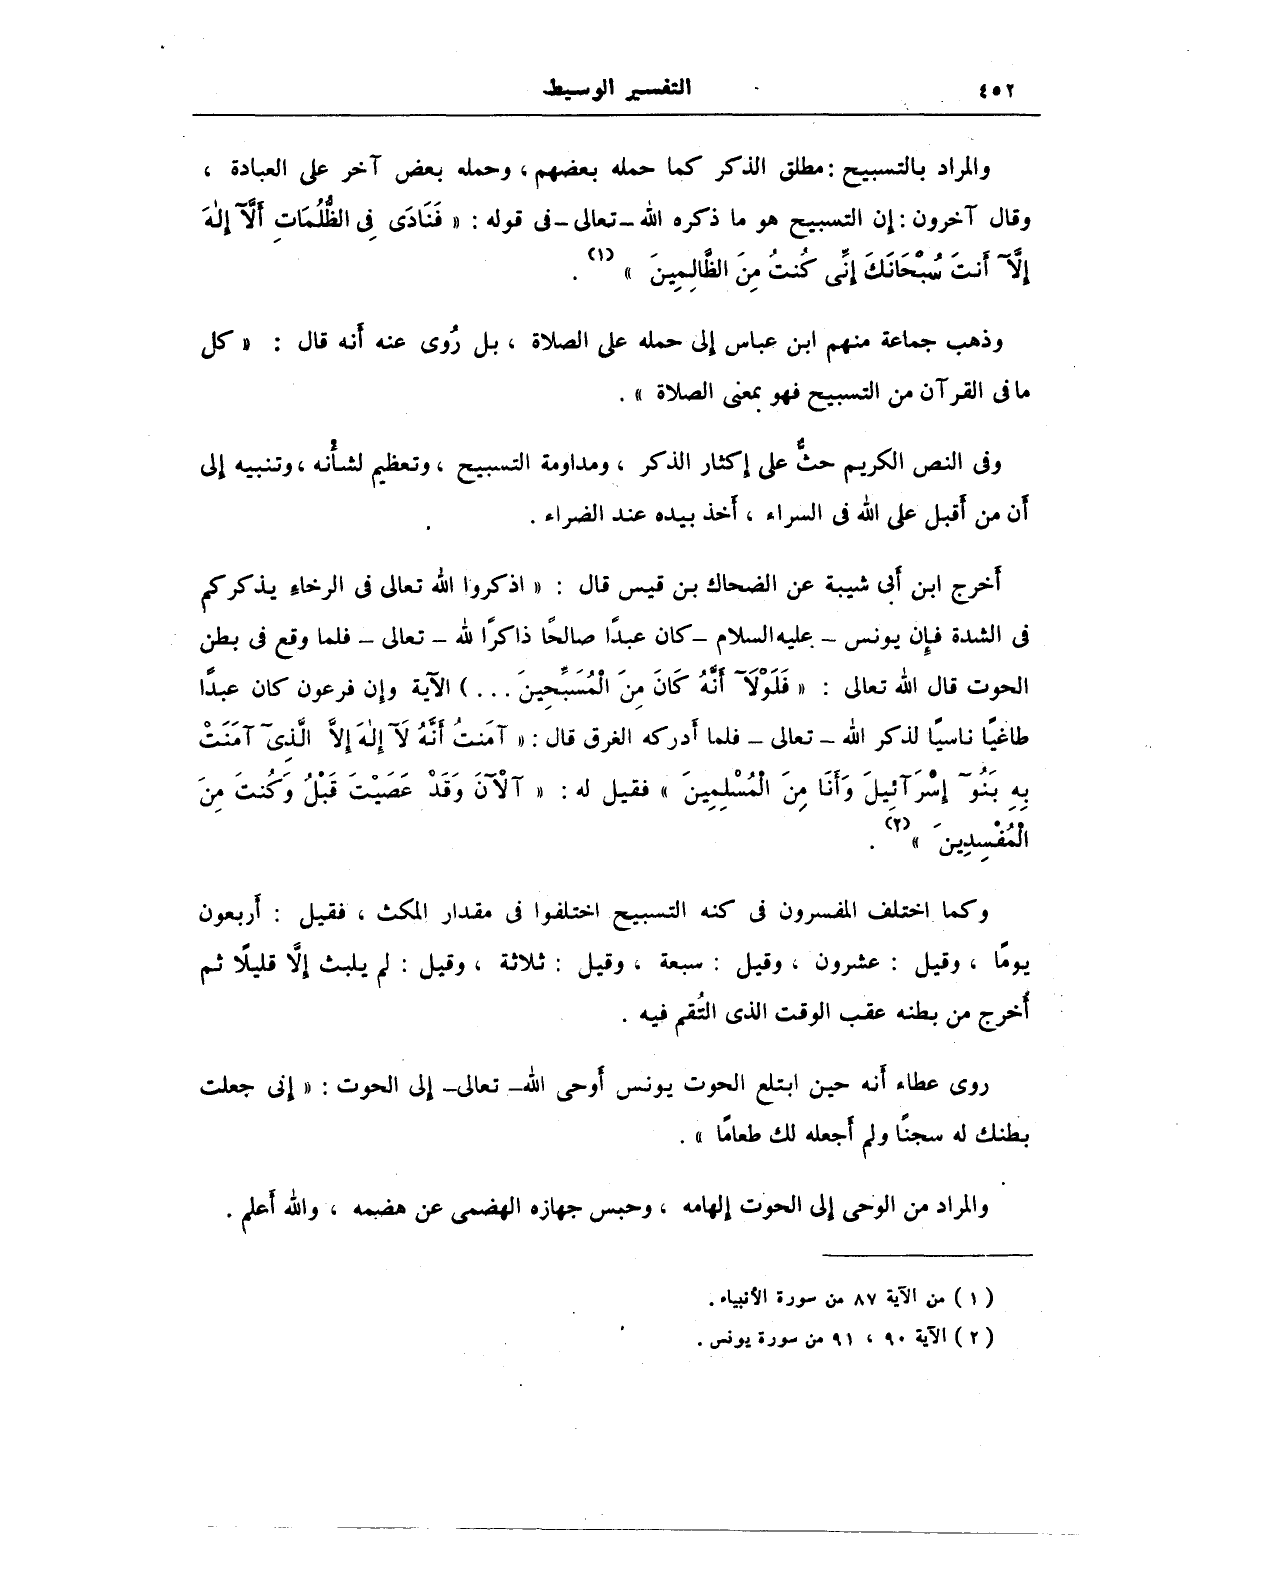 ٤٥٢ التفسير الوسيط
والمراد بالتسبيح : مطلق الذكر كما حمله بعضهم ، وحمله بعض آخر على العبادة ،
وقال آخرون : إن التسبيح هو ما ذكره الله ـ تعالى ـ فى قوله : « فَنَادَى فِى الظُّلُمَاتِ أَلَّآ إِلٰهَ
إِلَّآ أَنتَ سُبْحَانَكَ إِنِّى كُنتُ مِنَ الظَّالِمِينَ » (١) .
وذهب جماعة منهم ابن عباس إلى حمله على الصلاة ، بل رُوى عنه أنه قال : « كل
ما فى القرآن من التسبيح فهو بمعنى الصلاة » .
وفى النص الكريم حثٌّ على إكثار الذكر ، ومداومة التسبيح ، وتعظيم لشأنه ، وتنبيه إلى
أن من أقبل على الله فى السراء ، أخذ بيده عند الضراء .
أخرج ابن أبى شيبة عن الضحاك بن قيس قال : « اذكروا الله تعالى فى الرخاء يذكركم
فى الشدة فإن يونس ـ عليه السلام ـ كان عبدًا صالحًا ذاكرًا لله ـ تعالى ـ فلما وقع فى بطن
الحوت قال الله تعالى : « فَلَوْلَآ أَنَّهُ كَانَ مِنَ الْمُسَبِّحِينَ ... ) الآية وإن فرعون كان عبدًا
طاغيًا ناسيًا لذكر الله ـ تعالى ـ فلما أدركه الغرق قال : « آمَنتُ أَنَّهُ لَآ إِلٰهَ إِلاَّ الَّذِىٓ آمَنَتْ
بِهِ بَنُوٓ إِسْرَآئِيلَ وَأَنَا مِنَ الْمُسْلِمِينَ » فقيل له : « آلْآنَ وَقَدْ عَصَيْتَ قَبْلُ وَكُنتَ مِنَ
الْمُفْسِدِينَ » (٢) .
وكما اختلف المفسرون فى كنه التسبيح اختلفوا فى مقدار المكث ، فقيل : أربعون
يومًا ، وقيل : عشرون ، وقيل : سبعة ، وقيل : ثلاثة ، وقيل : لم يلبث إلَّا قليلًا ثم
أُخرج من بطنه عقب الوقت الذى التُقم فيه .
روى عطاء أنه حين ابتلع الحوت يونس أوحى الله ـ تعالى ـ إلى الحوت : « إنى جعلت
بطنك له سجنًا ولم أجعله لك طعامًا » .
والمراد من الوحى إلى الحوت إلهامه ، وحبس جهازه الهضمى عن هضمه ، والله أعلم .
( ١ ) من الآية ٨٧ من سورة الأنبياء .
( ٢ ) الآية ٩٠ ، ٩١ من سورة يونس .